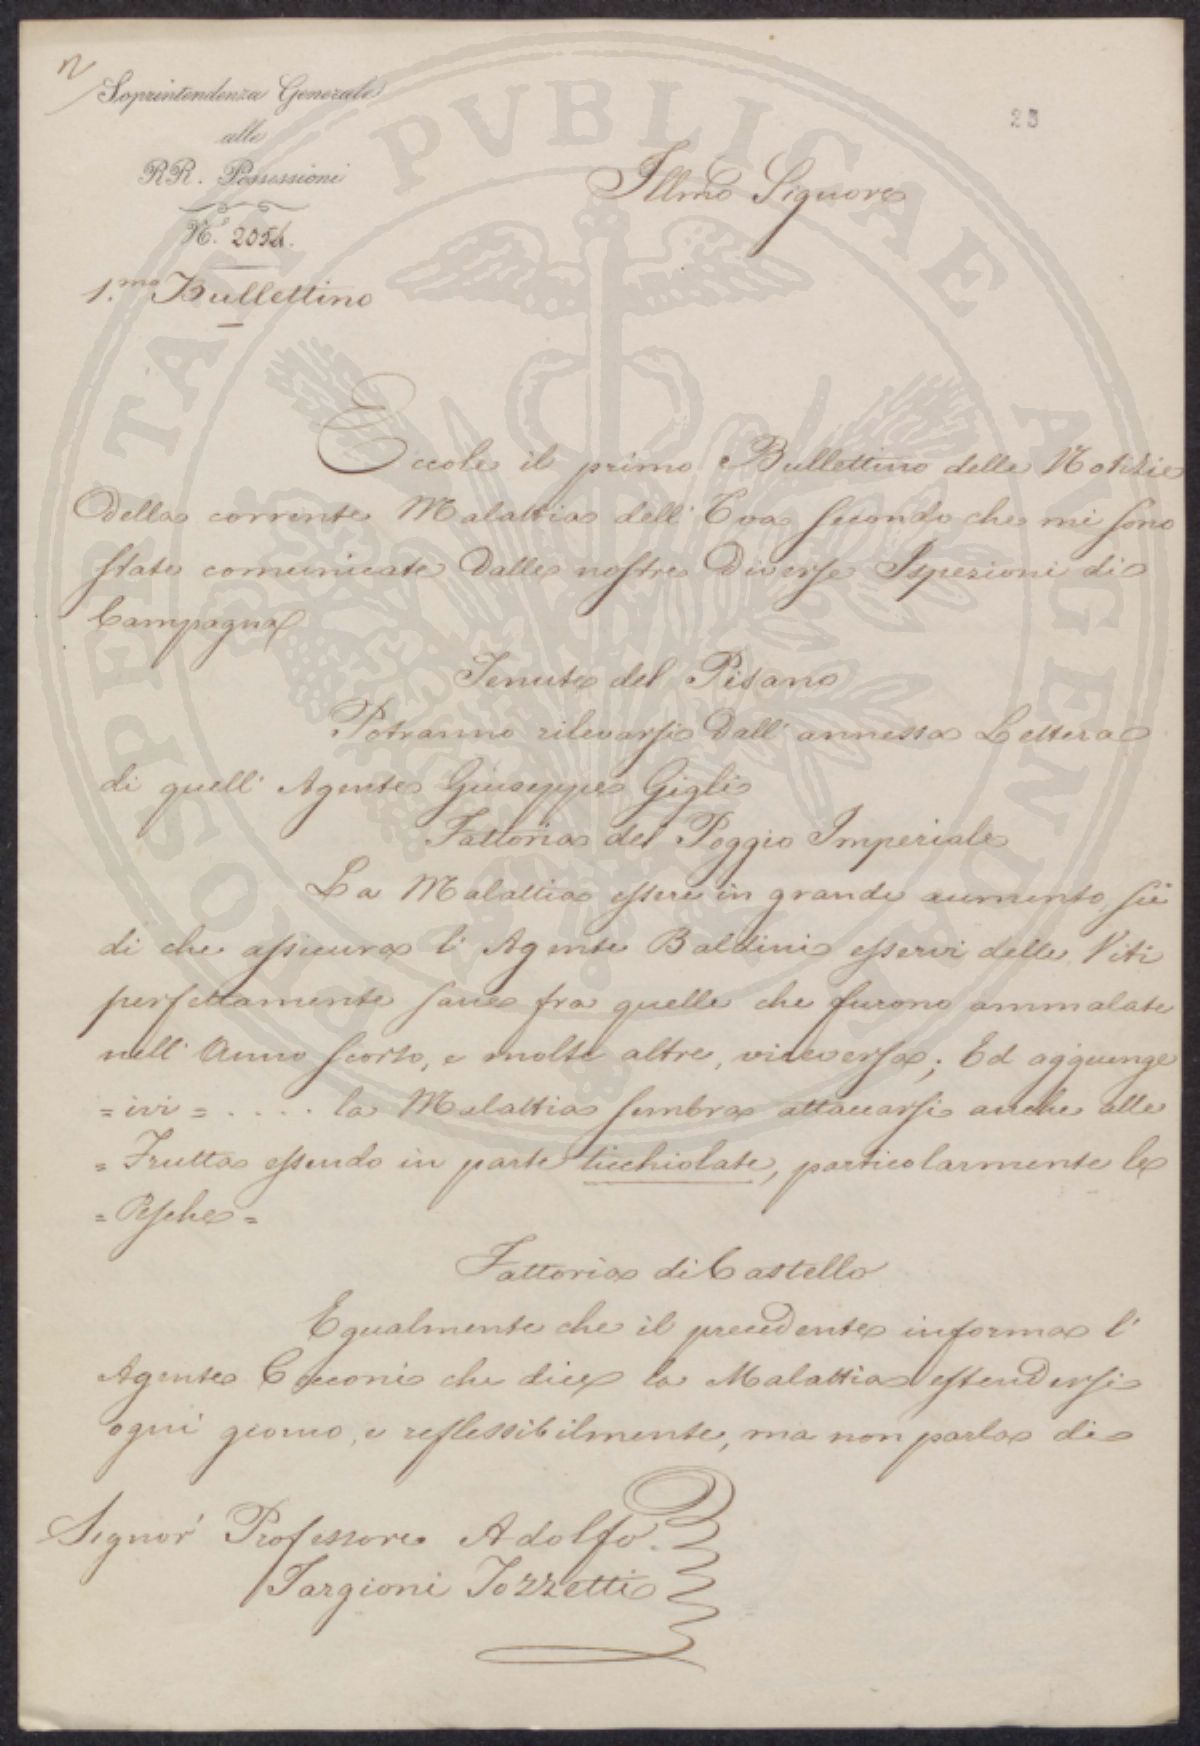 n
Soprintendenza Generale
alle
RR. Possessioni
N.º 2054.
23
Illmo Signore
1.mo Bullettino
Eccole il primo Bullettino delle Notizie
della corrente Malattia dell' Uva secondo che mi sono
state comunicate dalle nostre diverse Ispezioni di
Campagna
Tenute del Pisano
Potranno rilevarsi dall' annessa Lettera
di quell' Agente Giuseppe Gigli
Fattoria del Poggio Imperiale
La Malattia essere in grande aumento,
di che assicura l' Agente Baldini esservi delle Viti
perfettamente sane fra quelle che furono ammalate
nell' Anno scorso, e molte altre, viceversa; Ed aggiunge
= ivi = . . . . la Malattia sembra attaccarsi anche alle
= Frutta essendo in parte ticchiolate, particolarmente le
= Pesche =
Fattoria di Castello
Egualmente che il precedente informa l'
Agente Cecconi che dice la Malattia estendersi
ogni giorno, e reflessibilmente, ma non parla di
Signor' Professore Adolfo
Targioni Tozzetti
PROSPERITATI PVBLICAE AVGENDAE